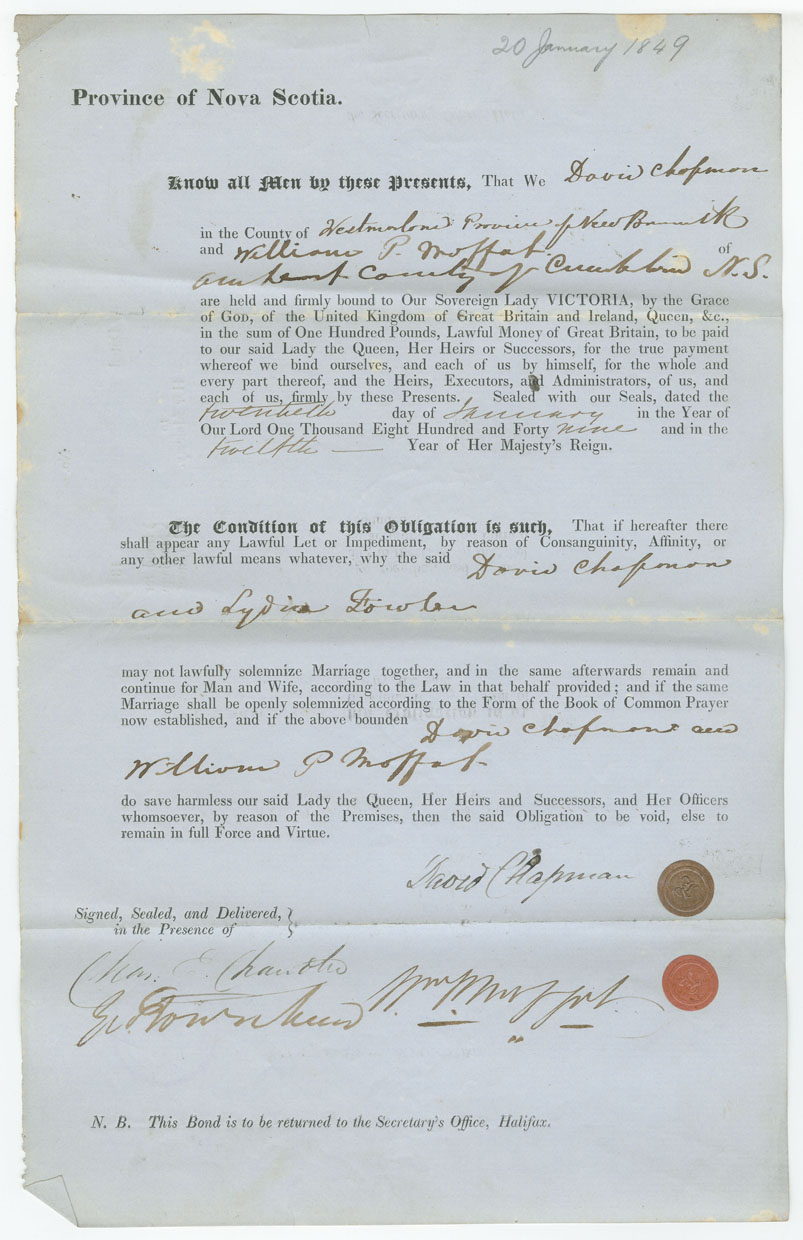 20 January 1849
Province of Nova Scotia.
Know all Men by these Presents, That We David Chapman
in the County of Westmorland Province of New Brunswik
and William P. Moffat of
Amherst County of Cumberland N.S.
are held and firmly bound to Our Sovereign Lady VICTORIA, by the Grace
of GOD, of the United Kingdom of Great Britain and Ireland, Queen, &c.,
in the sum of One Hundred Pounds, Lawful Money of Great Britain, to be paid
to our said Lady the Queen, Her Heirs or Successors, for the true payment
whereof we bind ourselves, and each of us by himself, for the whole and
every part thereof, and the Heirs, Executors, and Administrators, of us, and
each of us, firmly by these Presents. Sealed with our Seals, dated the
twentieth day of January in the Year of
Our Lord One Thousand Eight Hundred and Forty nine and in the
twelfth — Year of Her Majesty's Reign.
The Condition of this Obligation is such, That if hereafter there
shall appear any Lawful Let or Impediment, by reason of Consanguinity, Affinity, or
any other lawful means whatever, why the said David Chapman
and Lydia Fowler
may not lawfully solemnize Marriage together, and in the same afterwards remain and
continue for Man and Wife, according to the Law in that behalf provided; and if the same
Marriage shall be openly solemnized according to the Form of the Book of Common Prayer
now established, and if the above bounden David Chapman and
William P Moffat
do save harmless our said Lady the Queen, Her Heirs and Successors, and Her Officers
whomsoever, by reason of the Premises, then the said Obligation to be void, else to
remain in full Force and Virtue.
David Chapman
Signed, Sealed, and Delivered,
in the Presence of
Chas. E. Chandler
Wm. P. Moffat
Townshend
N. B. This Bond is to be returned to the Secretary's Office, Halifax.